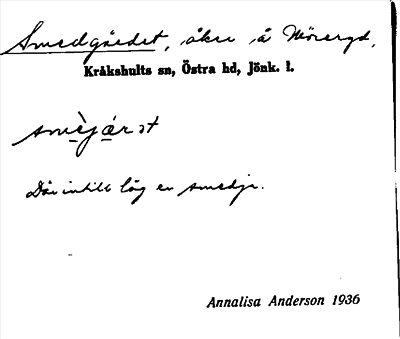 Smedgärdet, åker å Mörergd,
Kråkshults sn, Östra hd, Jönk. l.
smèjárət
Där intill låg en smedja.
Annalisa Anderson 1936